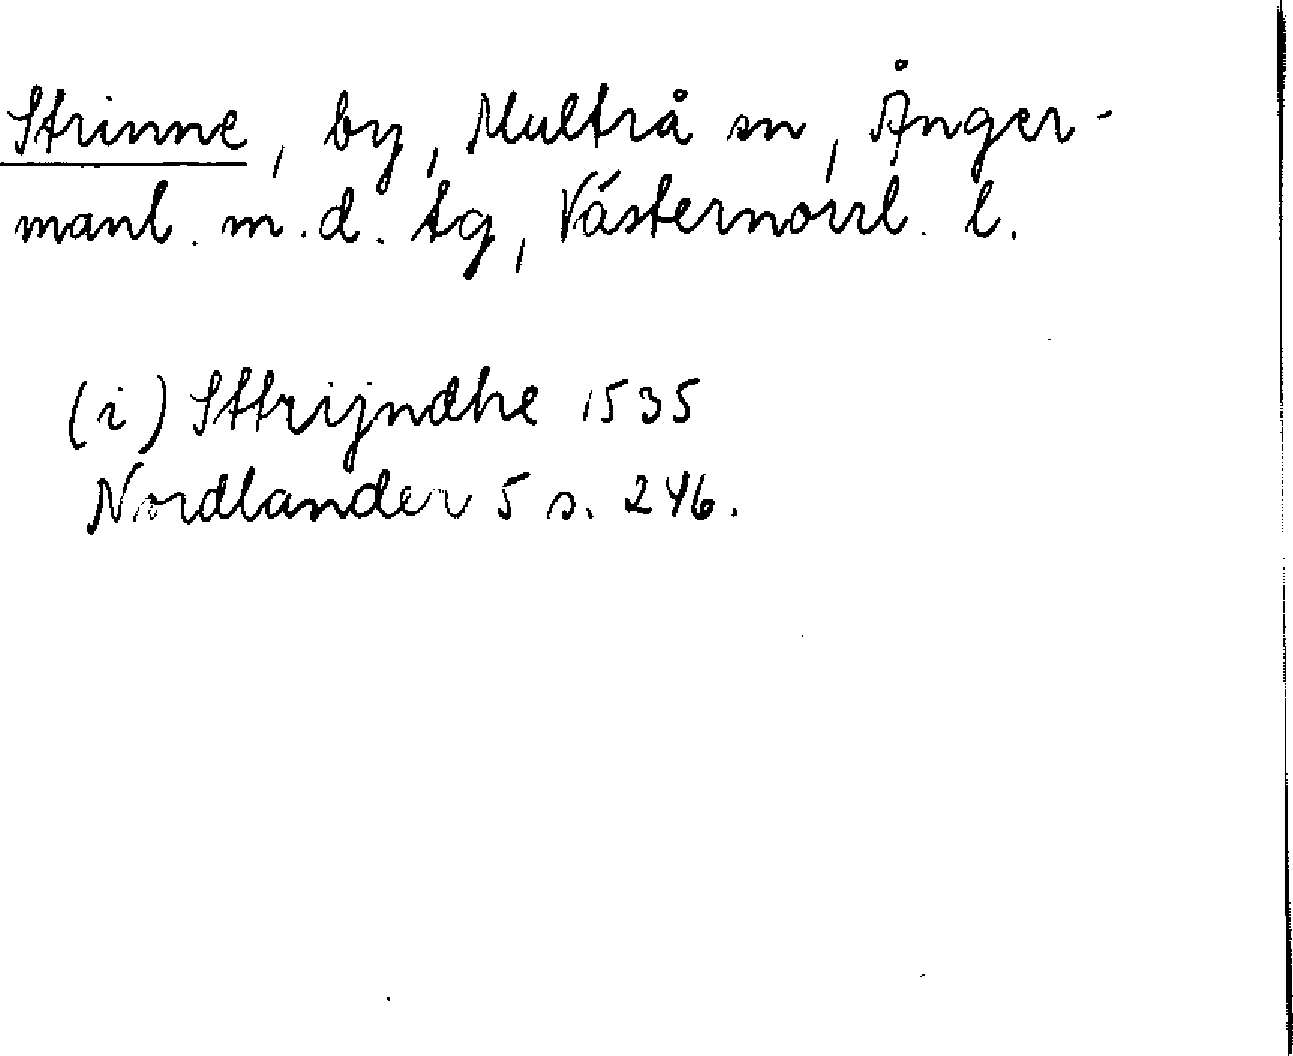 Strinne, by, Multrå sn, Ånger-
manl. m.d. tg, Västernorrl. l.
(i) Sttrijndhe 1535
Nordlander 5 s. 246.